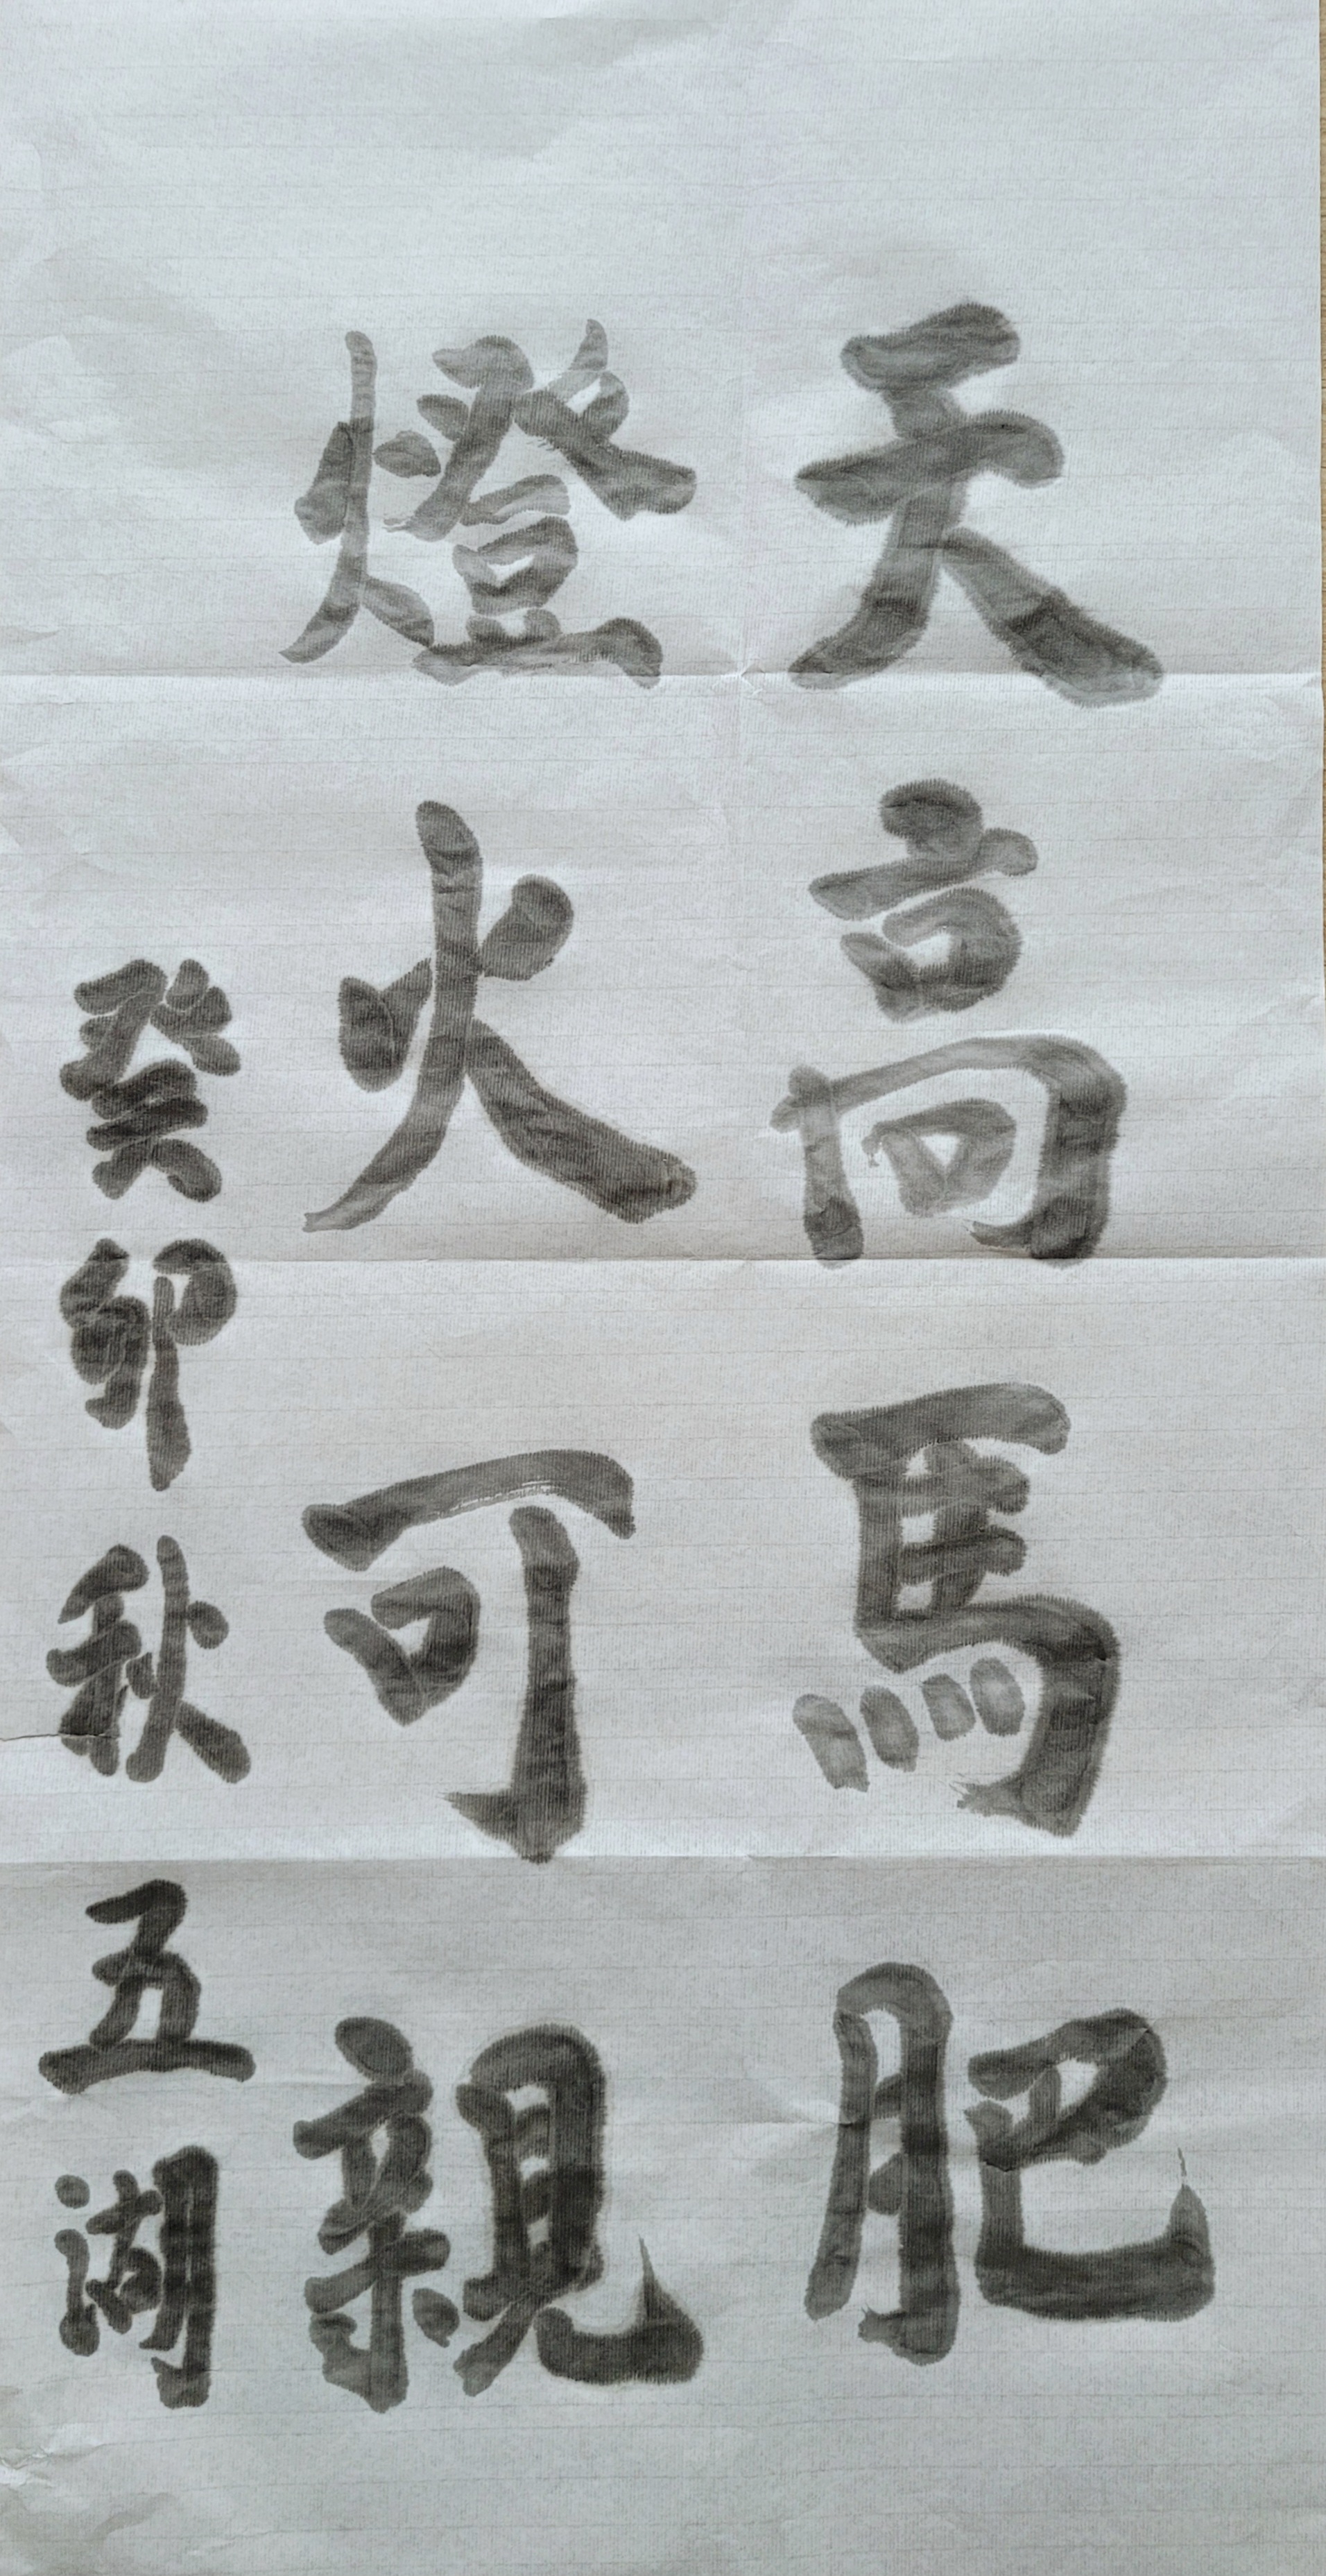 天高馬肥
燈火可親
癸卯秋五湖